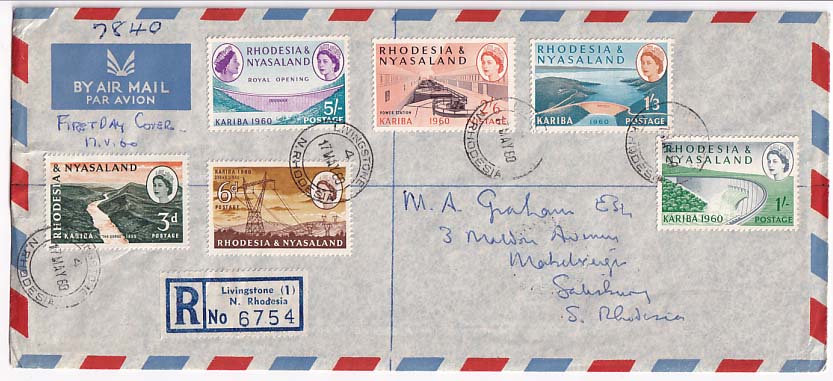 7840
BY AIR MAIL
PAR AVION
FIRST DAY COVER
17.V.60
RHODESIA &
NYASALAND
ROYAL OPENING
5/-
KARIBA 1960 POSTAGE
RHODESIA &
NYASALAND
POWER STATION
2/6
KARIBA 1960 POSTAGE
RHODESIA &
NYASALAND
1/3
KARIBA 1960 POSTAGE
RHODESIA &
NYASALAND
1/-
KARIBA 1960 POSTAGE
RHODESIA & NYASALAND
3d
KARIBA POSTAGE
KARIBA 1960
6d
POSTAGE
RHODESIA & NYASALAND
LIVINGSTONE
4
17 MAY 60
N. RHODESIA
MAY 60
RHODESIA
4
17 MAY 60
N. RHODESIA
M. A. Graham Esq
3 Avenue
Salisbury
S. Rhodesia
R
Livingstone (1)
N. Rhodesia
No 6754